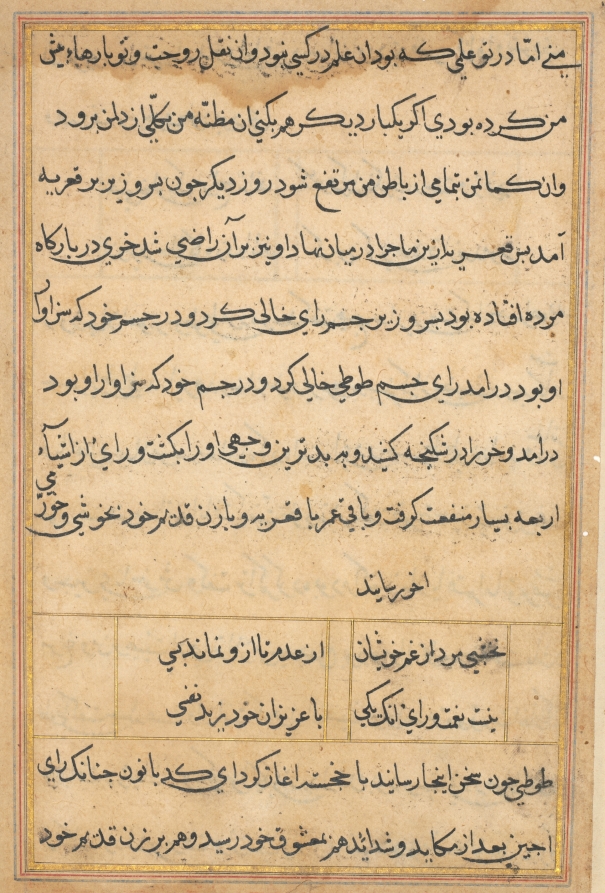 منی اما در تو علمی که بود ان علم در کسی نبود و ان نقل روحت و تو بارها پیش
من کرده بودی اکر یکبار دیکر هم بکنی ان مظنه من بکلی از دل من برود
وان کمان من بتمامی از باطن من مرتفع شود روز دیکر چون بسر وزیر بر قعریه
آمد پس قعریه ازین ماجرا در میان نهاد او نیز بر آن راضی شد خری در بارکاه
مرده افتاده بود پسر وزیر جسم رای خالی کرد و در جسم خود که سزاوار
او بود درامد رای جسم طوطی خالی کرد و در جسم خود که سزاوار او بود
درامد و خر را در شکنجه کشید و به بدترین وجهی او را بکشت و رای از اشیآء
اربعه بسیار منفعت کرفت و باقی عمر با قعریه و با زن قدیم خود بخوشی و خورمی
اخر رسانید
نخشبی مرد از غم خویشان
از عدم تا ازو نماند پی
نیست نعمت ورای انک یکی
با عزیزان خود زید نفسی
طوطی چون سخن اینجا رسانید با خجسته اغاز کرد ای کدبانو چنانک رای
اجین بعد از مکاید و شداید هم بمعشوق خود رسید و هم بر زن قدیم خود